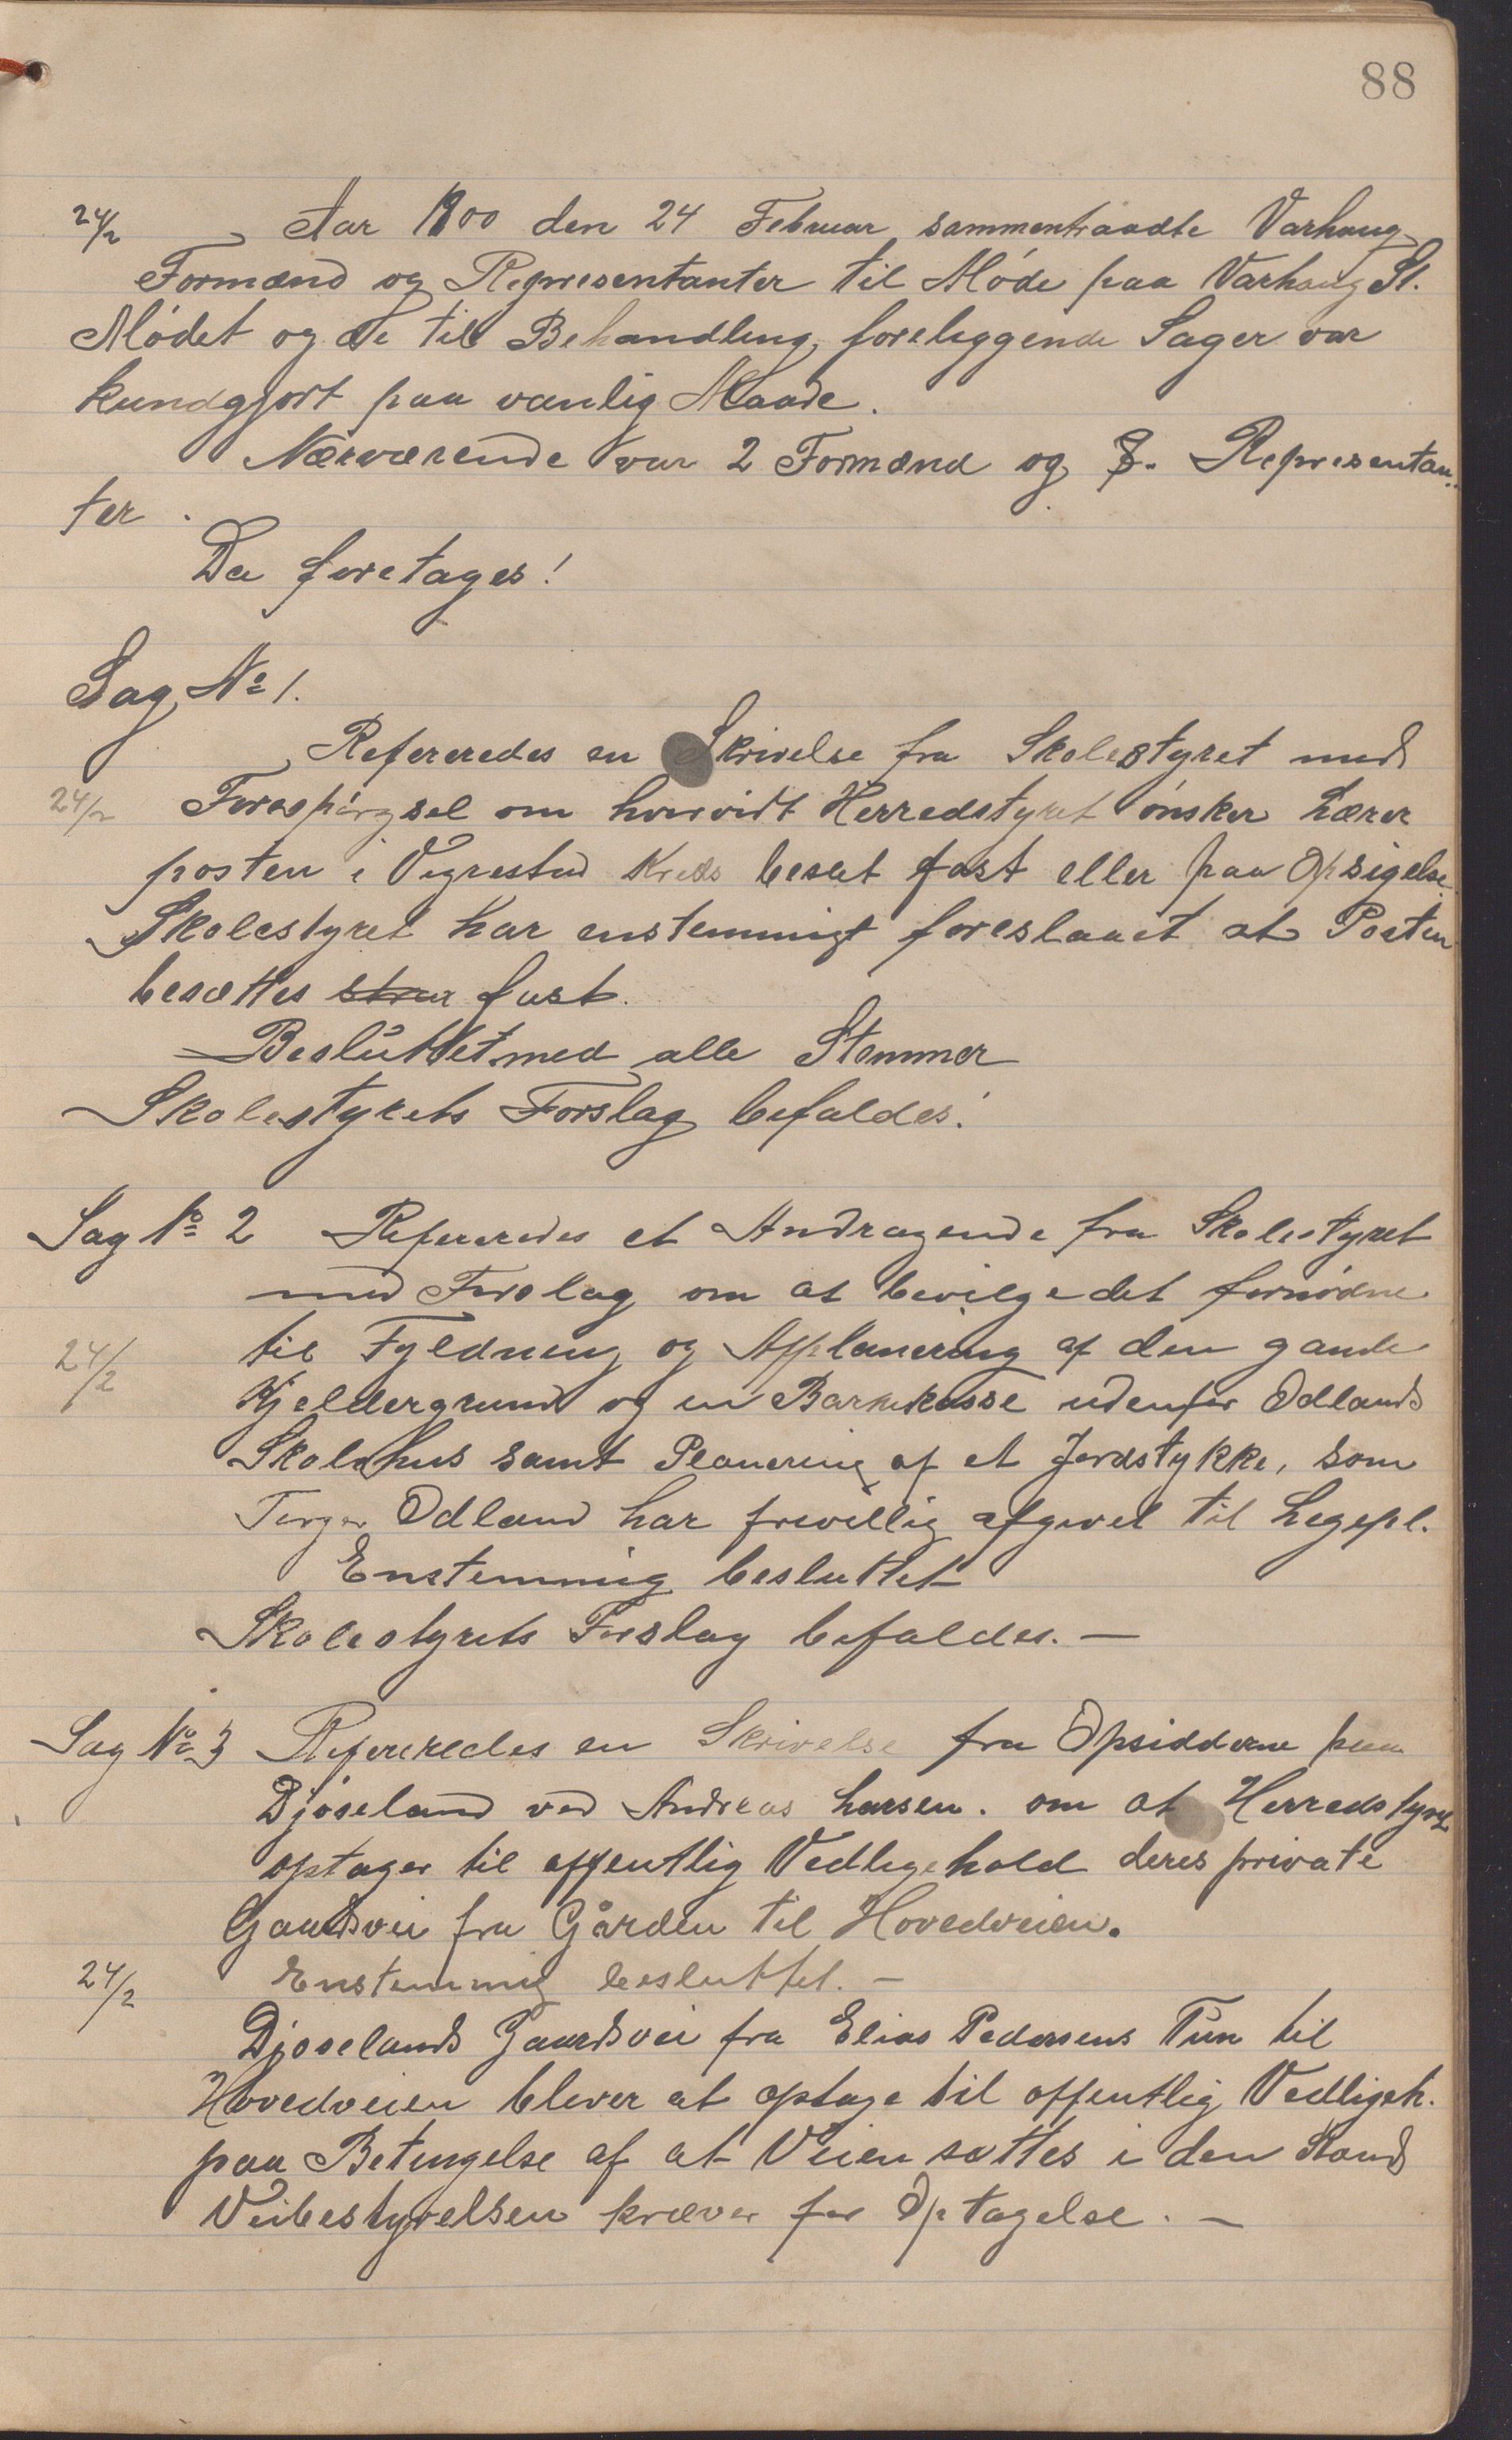 88
24/2 Aar 1900 den 24 Februar sammentraadte Varhaug
Formænd og Representanter til Møde paa Varhaug St.
Mødet og de til Behandling foreliggende Sager var
kundgjort paa vanlig Maade.
Nærværende var 2 Formænd og 8. Representan-
ter.
Da foretages!
Sag No 1.
Refereredes en Skrivelse fra Skolestyret med
24/2 Forespørgsel om hvorvidt Herredstyret ønsker Lærer
posten i Vigrestad Kreds besat fast eller paa Opsigelse.
Skolestyret har enstemmigt foreslaaet at Posten
besættes fast.
Besluttet med alle Stemmer
Skolestyrets Forslag bifaldes!
Sag No 2 Refereredes et Andragende fra Skolestyret
med Forslag om at bevilge det fornødne
24/2 til Fyldning og Afplanering af den gamle
Kjeldergrund og en udenfor Odlands
Skolehus samt Planering af et Jordstykke, som
Torger Odland har frivillig afgivet til Legepl.
Enstemmig besluttet
Skolestyrets Forslag bifaldes. —
Sag No 3 Refereredes en Skrivelse fra Opsidderne paa
Djøseland ved Andreas Larsen. om at Herredstyret
optager til offentlig Vedligehold deres private
Gaardsvei fra Gården til Hovedveien.
24/2 Enstemmig besluttet. —
Djøselands Gaardsvei fra Elias Pedersens Tun til
Hovedveien bliver at optage til offentlig Vedligeh.
paa Betingelse af at Veien sættes i den Stand
Veibestyrelsen kræver for Optagelse. —